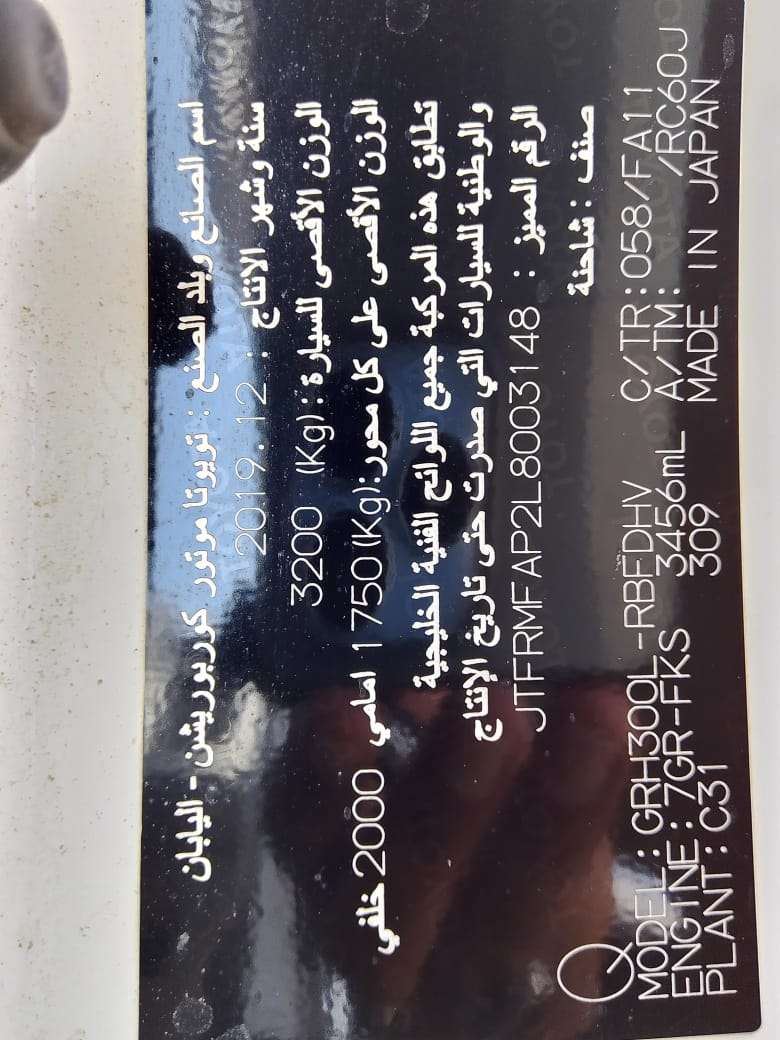 اسم الصانع وبلد الصنع : تويوتا موتور كوربوريشن - اليابان
سنة وشهر الانتاج : 2019.12
الوزن الأقصى للسيارة : (Kg) 3200
الوزن الأقصى على كل محور:(Kg) 1750 امامي 2000 خلفي
تطابق هذه المركبة جميع اللوائح الفنية الخليجية
والوطنية للسيارات التي صدرت حتى تاريخ الإنتاج
الرقم المميز : JTFRMFAP2L8003148
صنف : شاحنة
Q
MODEL : GRH300L -RBFDHV C/TR : 058/FA11
ENGINE : 7GR-FKS 3456mL A/TM: /RC60J
PLANT : C31 309 MADE IN JAPAN